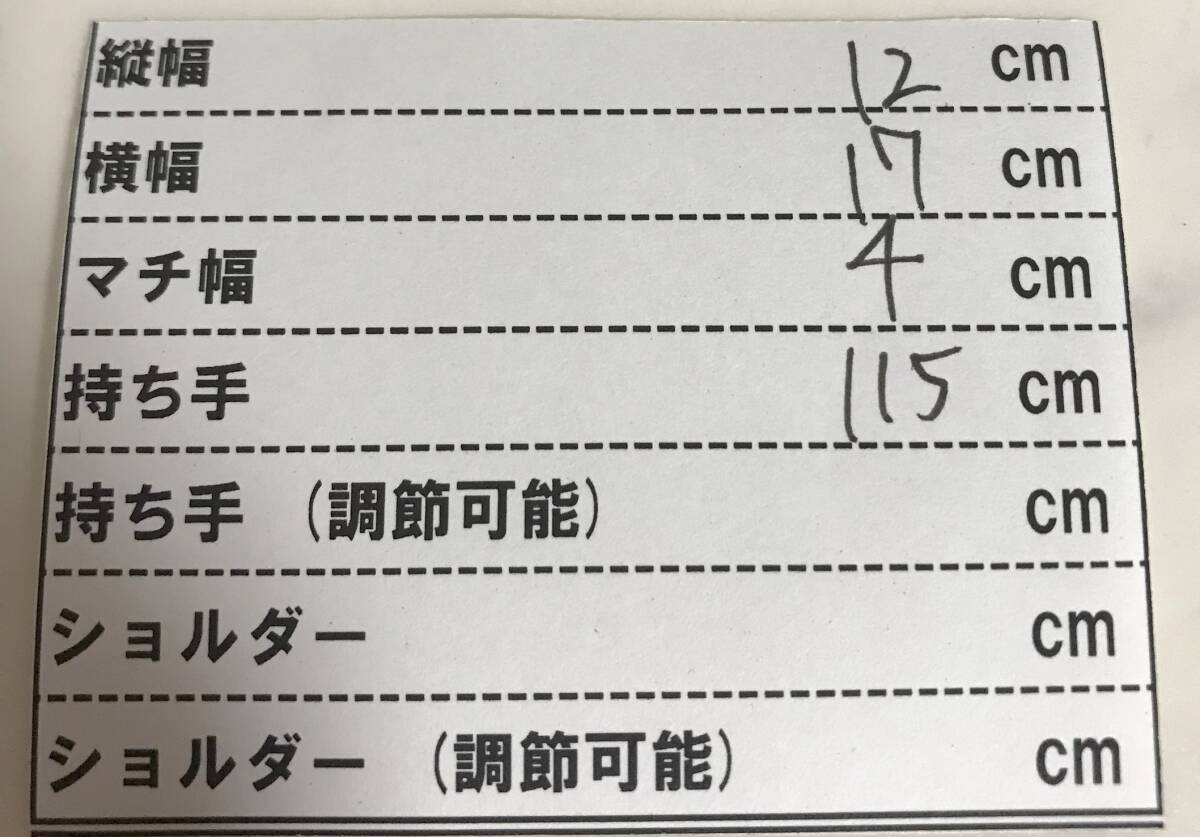 縦幅 12 cm
横幅 17 cm
マチ幅 4 cm
持ち手 115 cm
持ち手 (調節可能) cm
ショルダー cm
ショルダー (調節可能) cm